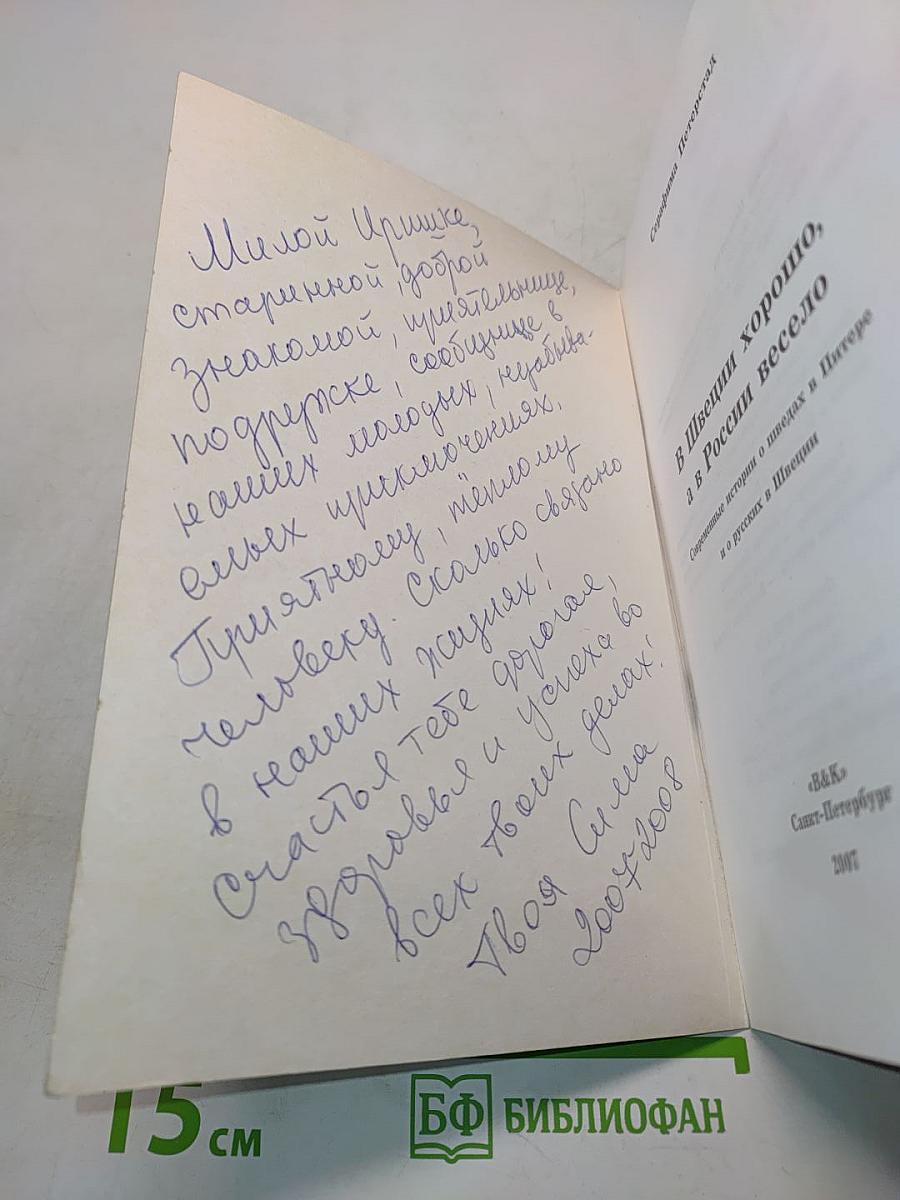 Милой Иришке,
старинной, доброй
знакомой, приятельнице,
подружке, сообщнице в
наших молодых, незабыва-
емых приключениях.
Приятному, тёплому
человеку. Сколько связано
в наших жизнях!
Счастья тебе дорогая,
здоровья и успеха во
всех твоих делах!
Твоя Сима
2007-2008
Серафима Петерстад
В Швеции хорошо,
а в России весело
Современные истории о шведах в Питере
и о русских в Швеции
«B&K»
Санкт-Петербург
2007
15 см
БФ БИБЛИОФАН